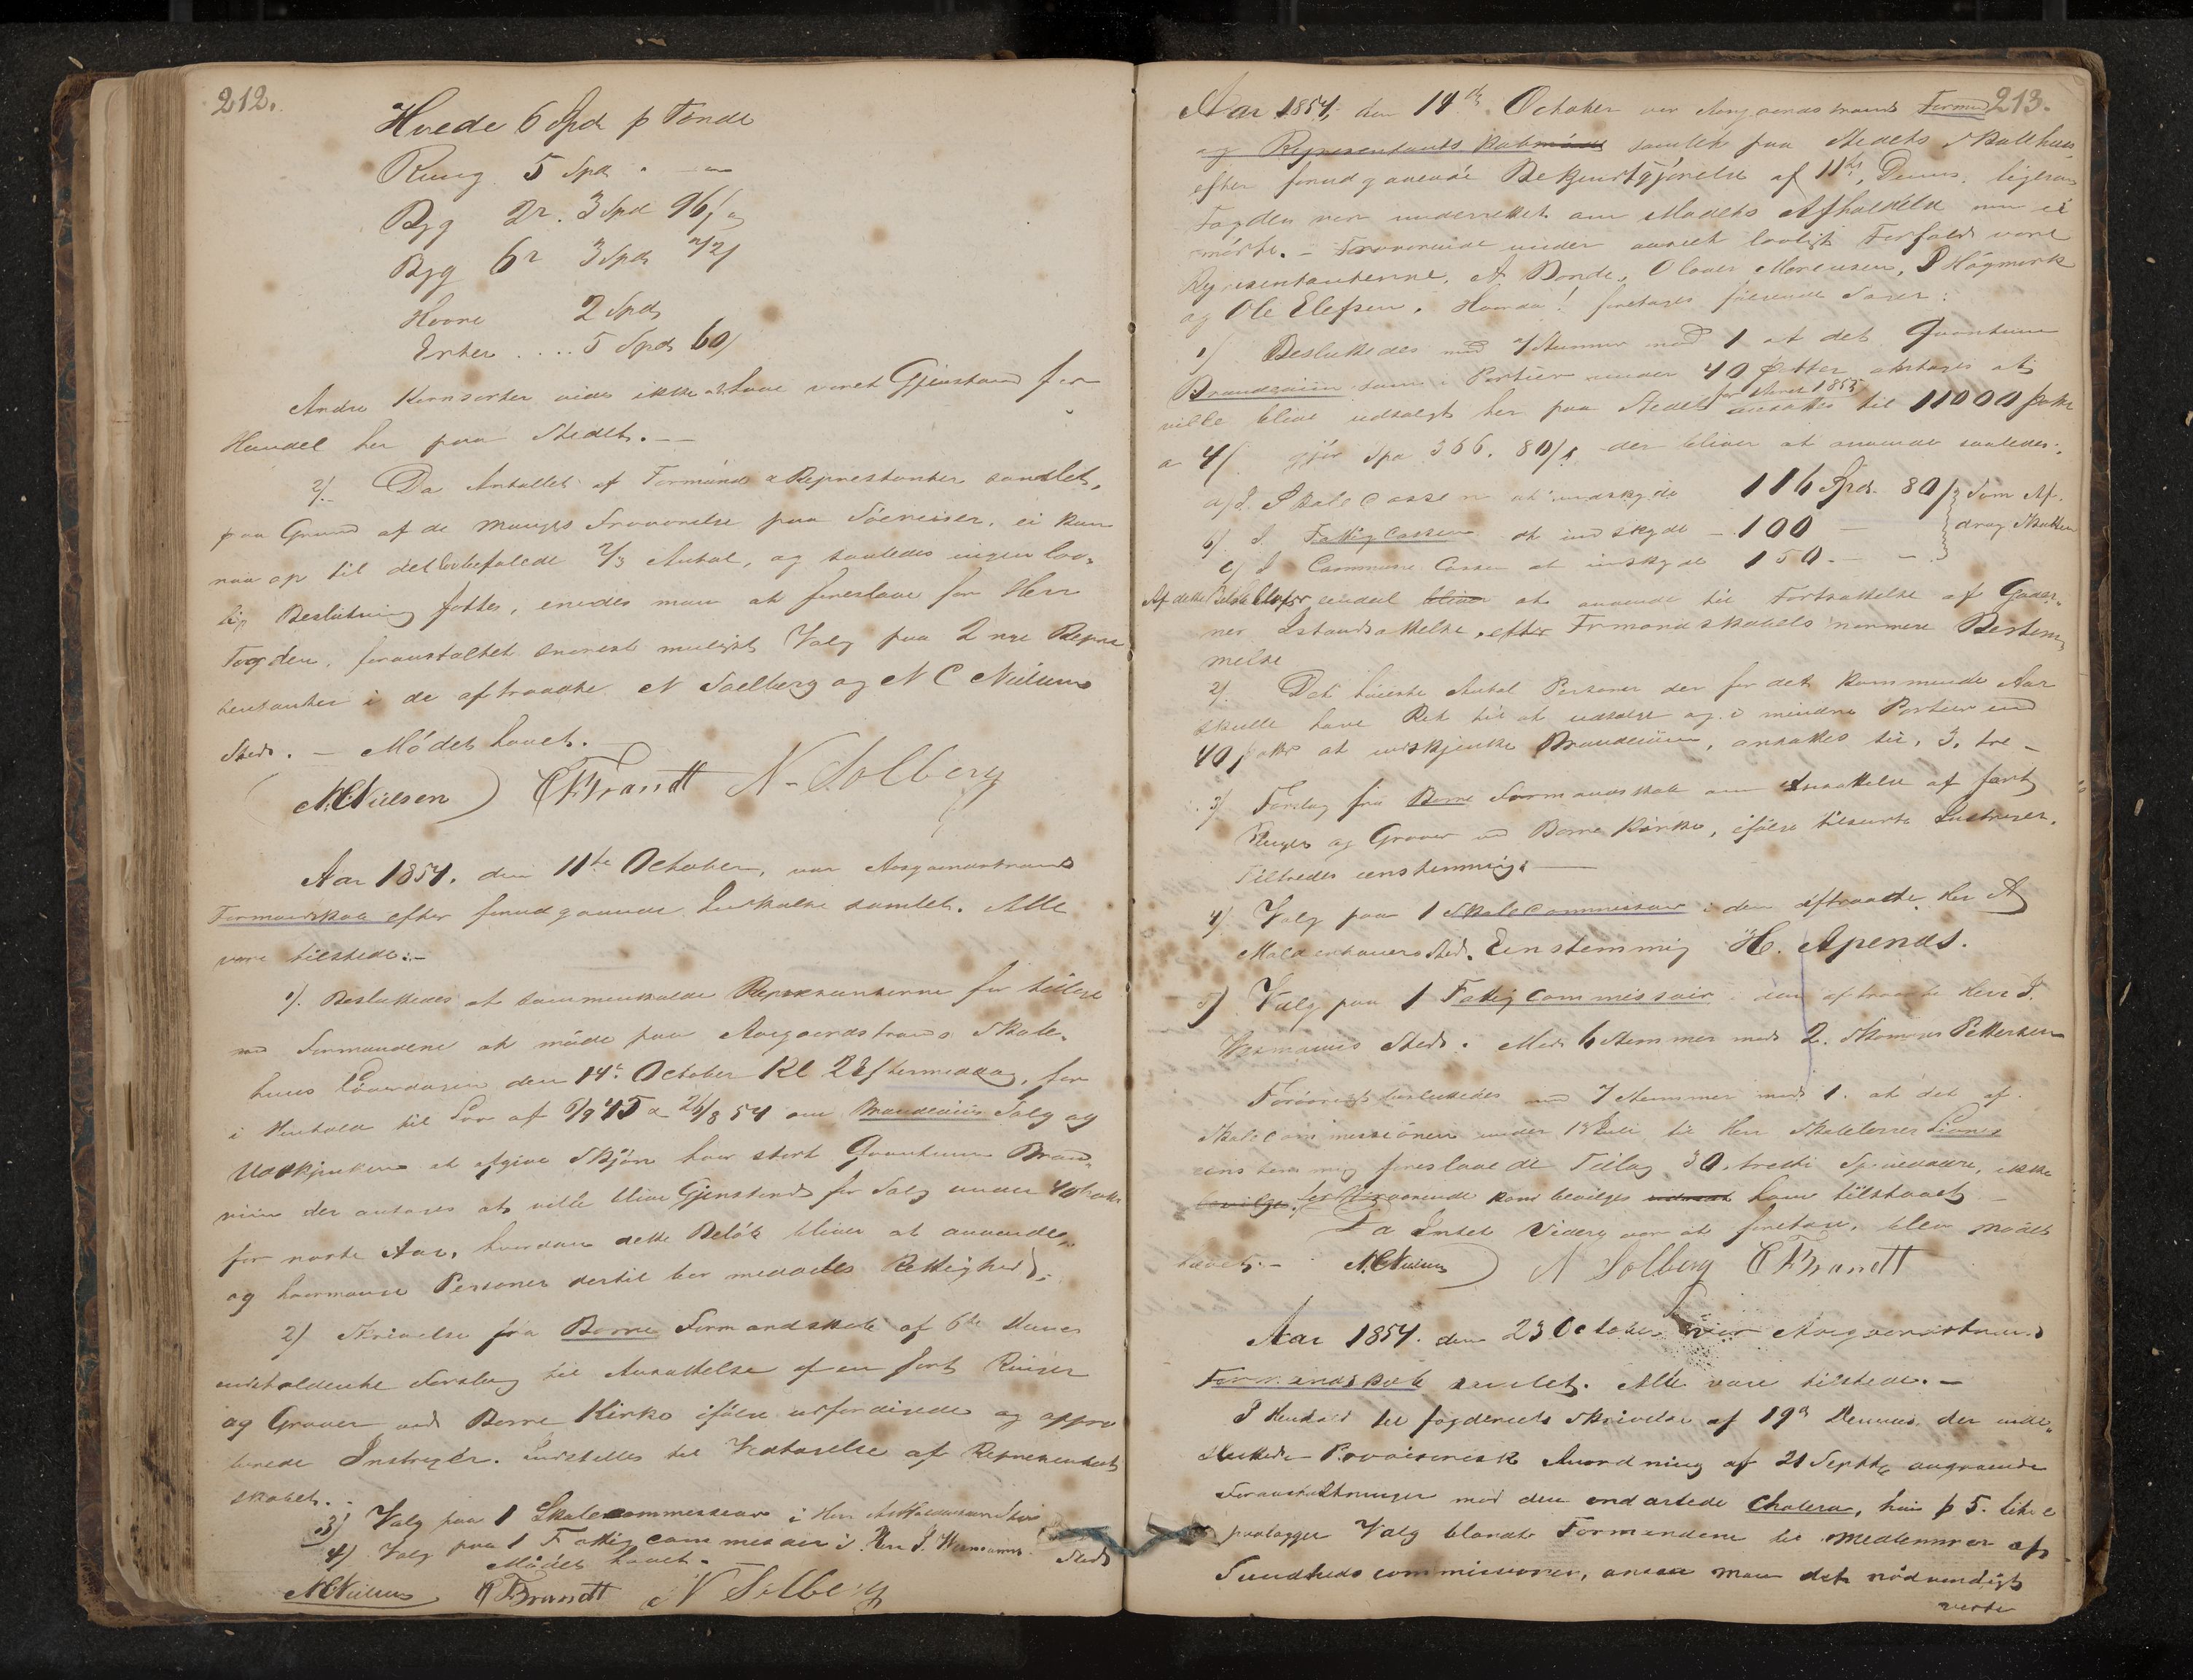 212.
Hvede 6 Spd p Tønde
Rug 5 Spd " —
Byg 2r. 3 Spd 96/ og
Byg 6r 3 Spd
Havre 2 Spd
Erter .... 5 Spd 60/
Andre Kornsorter vides ikke at have været Gjenstand for
Handel her paa Stedet. —
2/. Da Antallet af Formænd & Repræsentanter samlet,
paa Grund af de manges Fraværelse paa Søereiser, ei kan
naa op til det lovbefalede 2/3 Antal, og saaledes ingen lov-
lig Beslutning fattes, enedes man at foreslaae for Herr
Fogden, foranstaltet snarest muligst Valg paa 2 nye Repræ
sentanter i de aftraadte N Solberg og N C Nielsens
Sted. — Mødet hævet.
N.C.Nielsen) C F Brandt N. Solberg
Aar 1854. den 11te October, var Aasgaardstrands
Formandskab efter forudgaaende Indkaldelse samlet. Alle
vare tilstede: —
1/. Besluttedes at sammenkalde Repræsentanterne for tillige
med Formændene at møde paa Aasgaardstrands Skole-
huus Løverdagen den 14de October Kl 2 Eftermiddag, for
i Henhold til Lov af 6/9 45 & 26/8 54 om Brændeviins Salg og
Udskjænkning at afgive Skjøn hvor stort Qvantum Brænde-
viin der antages at ville blive Gjenstand for Salg under 40 Potter
for næste Aar, hvordan dette Beløb bliver at anvende,
og hvormange Personer dertil bør meddeles Rettighed;
2) Skrivelse fra Borre Formandskab af 6te dennes
indeholdende Forslag til Ansættelse af en fast Ringer
og Graver ved Borre Kirke ifølge udfærdigede og appro
berede Instruxer. Indstilles til Vedtagelse af Repræsentant
skabet. -
3) Valg paa 1 Skolecommissair i Herr A Moldenhauers Sted
4) Valg paa 1 Fattigcommissair i Herr J. Wismanns Sted
Mødet hævet.
N.C.Nielsen C F Brandt N Solberg
213.
Aar 1854, den 14de October var Aasgaardstrands Formand
og Repræsentantskab samlet paa Stedets Skolehuus
efter forudgaaende Bekjendtgjørelse af 11te Dennes. ligesom
Fogden var underrettet om Mødets Afholdelse men ei
mødte. — Fraværende under anmeldt lovligt Forfald vare
Repræsentanterne, A Bonde, Olaves Morensen, P Högmark
og Ole Elefsen. Hvorda! foretages følgende Sager:
1/ Besluttedes med 7 Stemmer mod 1 at det Qvantum
Brændeviin som i Portier under 40 Potter antages at
ville blive udsolgt her paa Stedet for Aaret 1855 ansættes til 11000 Potter
a 4/ gjør Spd 366. 80/s der bliver at anvende saaledes:
a/ I Skolecassen at indskyde 116 Spd. 80/ } Som Af-
b/ I Fattigcassen at indskyde — 100 — } drag Skatten
c/ I Commune Cassen at indskyde 150. — — }
Af dette Beløb endeel at anvende til Fortsættelse af Gader-
nes Istandsættelse, efter Formandskabets nærmere Bestem
melse
2/. Det høieste Antal Personer der for det kommende Aar
skulle have Ret til at udsælge og i mindre Portier end
40 Potter at udskjænke Brændeviin, ansættes til, 3, tre —
3/ Forslag fra Borre Formandskab om Ansættelse af fast
Ringer og Graver ved Borre Kirke, ifølge tilsendte Instruxer.
Tiltrædes eenstemmigt —
4/ Valg paa 1 Skolecommissair i den aftraadte Her A
Moldenhauers Sted. Eenstemmig H. Apenæs.
5) Valg paa 1 Fattigcommissair i den aftraadte Herr J.
Wismanns Sted. Med 6 Stemmer mod 2. Thomas Pettersen
Forøvrigt besluttedes med 7 Stemmer mod 1. at det af
Skolecommissionen under 13 Juli til Herr Skolelærer
eenstemmig foreslaaede Tillæg 30, tretti Speciedaler, ikke
for Nærværende kan bevilges ham tilstaaet —
Da Intet Videre var at foretage, blev mødet
hævet. — N.C.Nielsen) N Solberg C F Brandt
Aar 1854. den 23 October var Aasgaardstrands
Formandskab samlet. Alle vare tilstede. —
I Henhold til Fogderiets Skrivelse af 19de Dennes, der inde-
sluttede Provisorisk Anordning af 21 Septbr angaaende
Foranstaltninger mod den ondartede Cholera, hvis § 5. litr c
paalægger Valg blandt Formændene til Medlemmer af
Sundhedscommissionen, ansaa man det nødvendigt